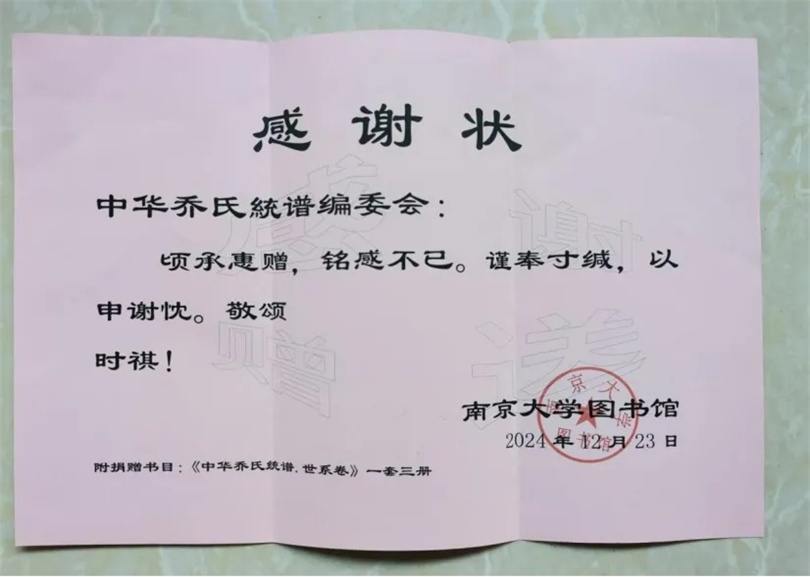 感谢状
中华乔氏統谱编委会：
顷承惠赠，铭感不已。谨奉寸缄，以
申谢忱。敬颂
时祺！
感谢
赠送
南京大学图书馆
2024年12月23日
南京大学
图书馆
附捐赠书目：《中华乔氏統谱.世系卷》一套三册